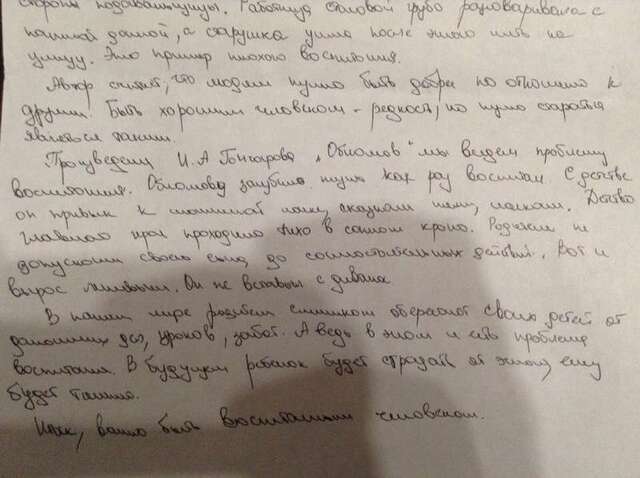 стороны подавальщицы. Работница столовой грубо разговаривала с
пожилой дамой, а старушка ушла после этого пить на
улицу. Это пример плохого воспитания.
Автор считает, что людям нужно быть добрее по отношению к
другим. Быть хорошим человеком - редкость, но нужно стараться
являться таким.
Произведении И.А Гончарова „Обломов" мы видем проблему
воспитания. Обломова загубило как раз воспитан. С детства
он привык к няни, сказкам няни, ласкам. Детство
главного героя проходило тихо в самом кроно. Родители не
допускали своего сына до самостоятельных действий. Вот и
вырос ленивым. Он не вставал с дивана
В нашем мире родители слишком оберегают своих детей от
домашних дел, уроков, забот. А ведь в этом и есть проблема
воспитания. В будущем ребенок будет страдать от этого, ему
будет
Итак, важно быть воспитанным человеком.